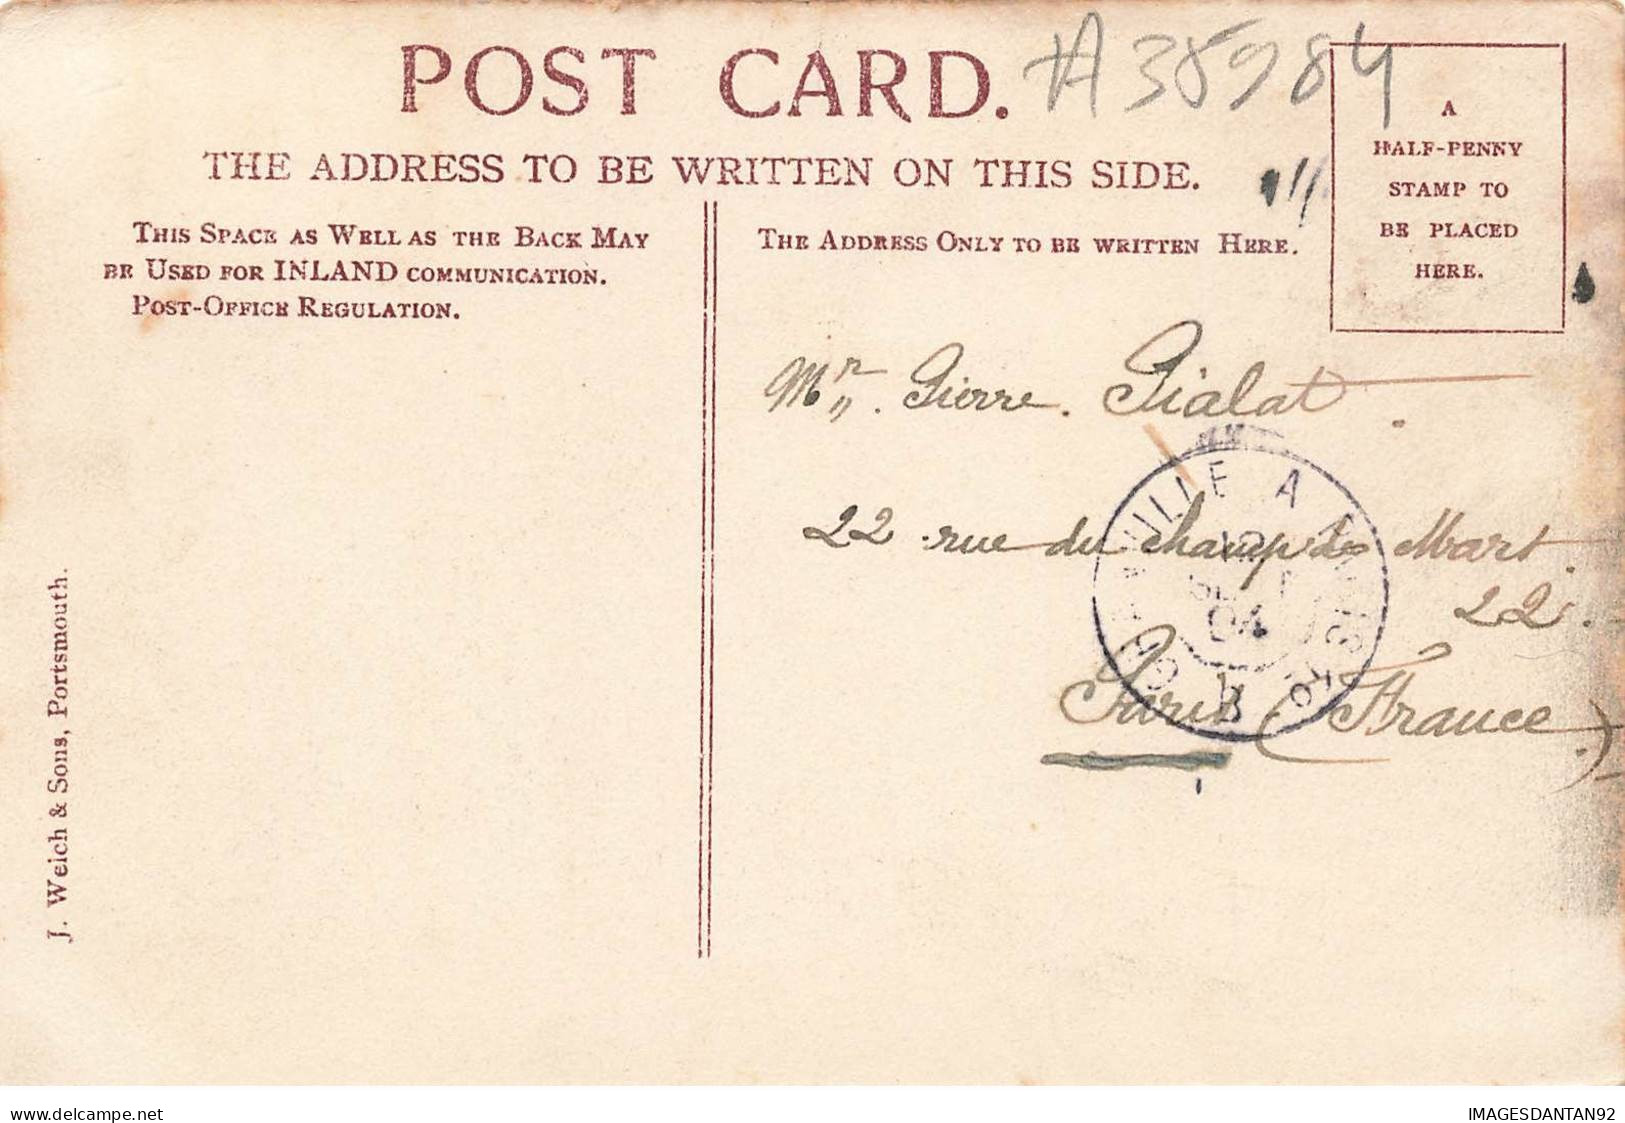 POST CARD.
A35984
THE ADDRESS TO BE WRITTEN ON THIS SIDE.
A
HALF-PENNY
STAMP TO
BE PLACED
HERE.
THIS SPACE AS WELL AS THE BACK MAY
BE USED FOR INLAND COMMUNICATION.
POST-OFFICE REGULATION.
THE ADDRESS ONLY TO BE WRITTEN HERE.
Mr. Pierre. Pialat.
22 rue du champ de Mars.
22.
Paris (France)
VILLE A
04
J. Welch & Sons, Portsmouth.
delcampe.net
IMAGESDANTAN92